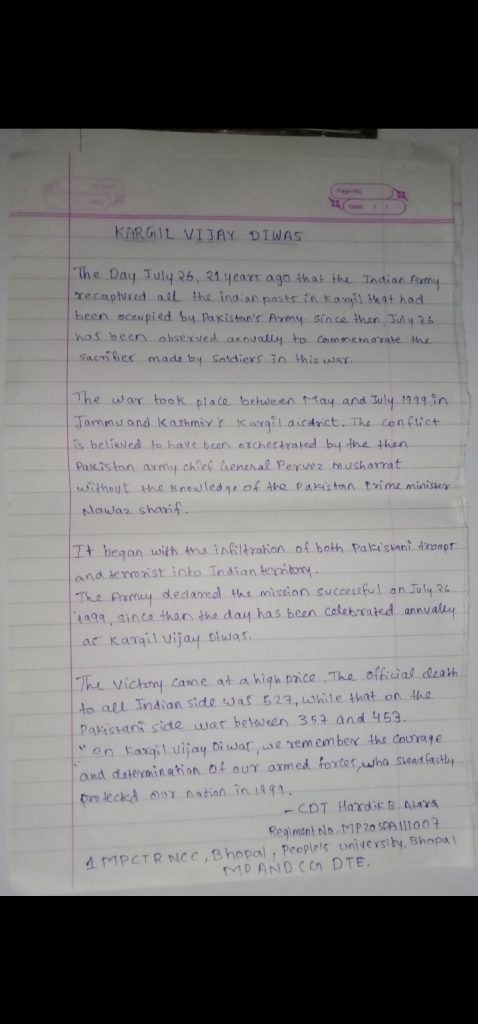 Page No.
Date / /
KARGIL VIJAY DIWAS
The Day July 26, 21 years ago that the Indian Army
recaptured all the indian posts in Kargil that had
been occupied by Pakistan's Army. Since then, July 26
has been observed annually to commemorate the
sacrifies made by Soldiers in this war.
The war took place between May and July 1999 in
Jammu and Kashmir's Kargil disdrict. The conflict
is believed to have been orchestrated by the then
Pakistan army chief General Pervez musharrat
without the knowledge of the Pakistan Prime minister
Nawaz sharif.
It began with the infiltration of both Pakistani troops
and terrorist into Indian territory.
The Army declared the mission successful on July 26
1999, since then the day has been celebrated annually
as Kargil Vijay Diwas.
The Victory came at a high price. The official death
to all Indian side was 527, while that on the
Pakistani side was between 357 and 453.
"on Kargil vijay Diwas, we remember the courage
and determination of our armed forces, who steadfastly
protected our nation in 1999.
- CDT Hardik B.
Regiment No. MP20SDA111007
1 MPCTR NCC, Bhopal, People's university, Bhopal
MP AND CG DTE.